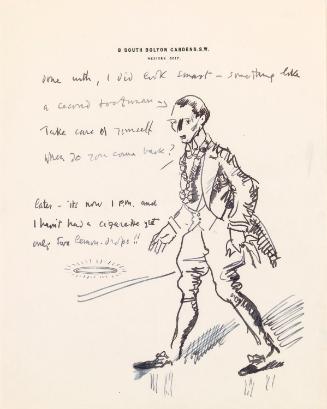 8 SOUTH BOLTON GARDENS. S.W.
WESTERN 2297.
done with, I did look smart – something like
a second footman –
Take care of Yourself
When do you come back?
Later – its now 1 P.M. and
I haven't had a cigarette yet
only two lemon-drops!!